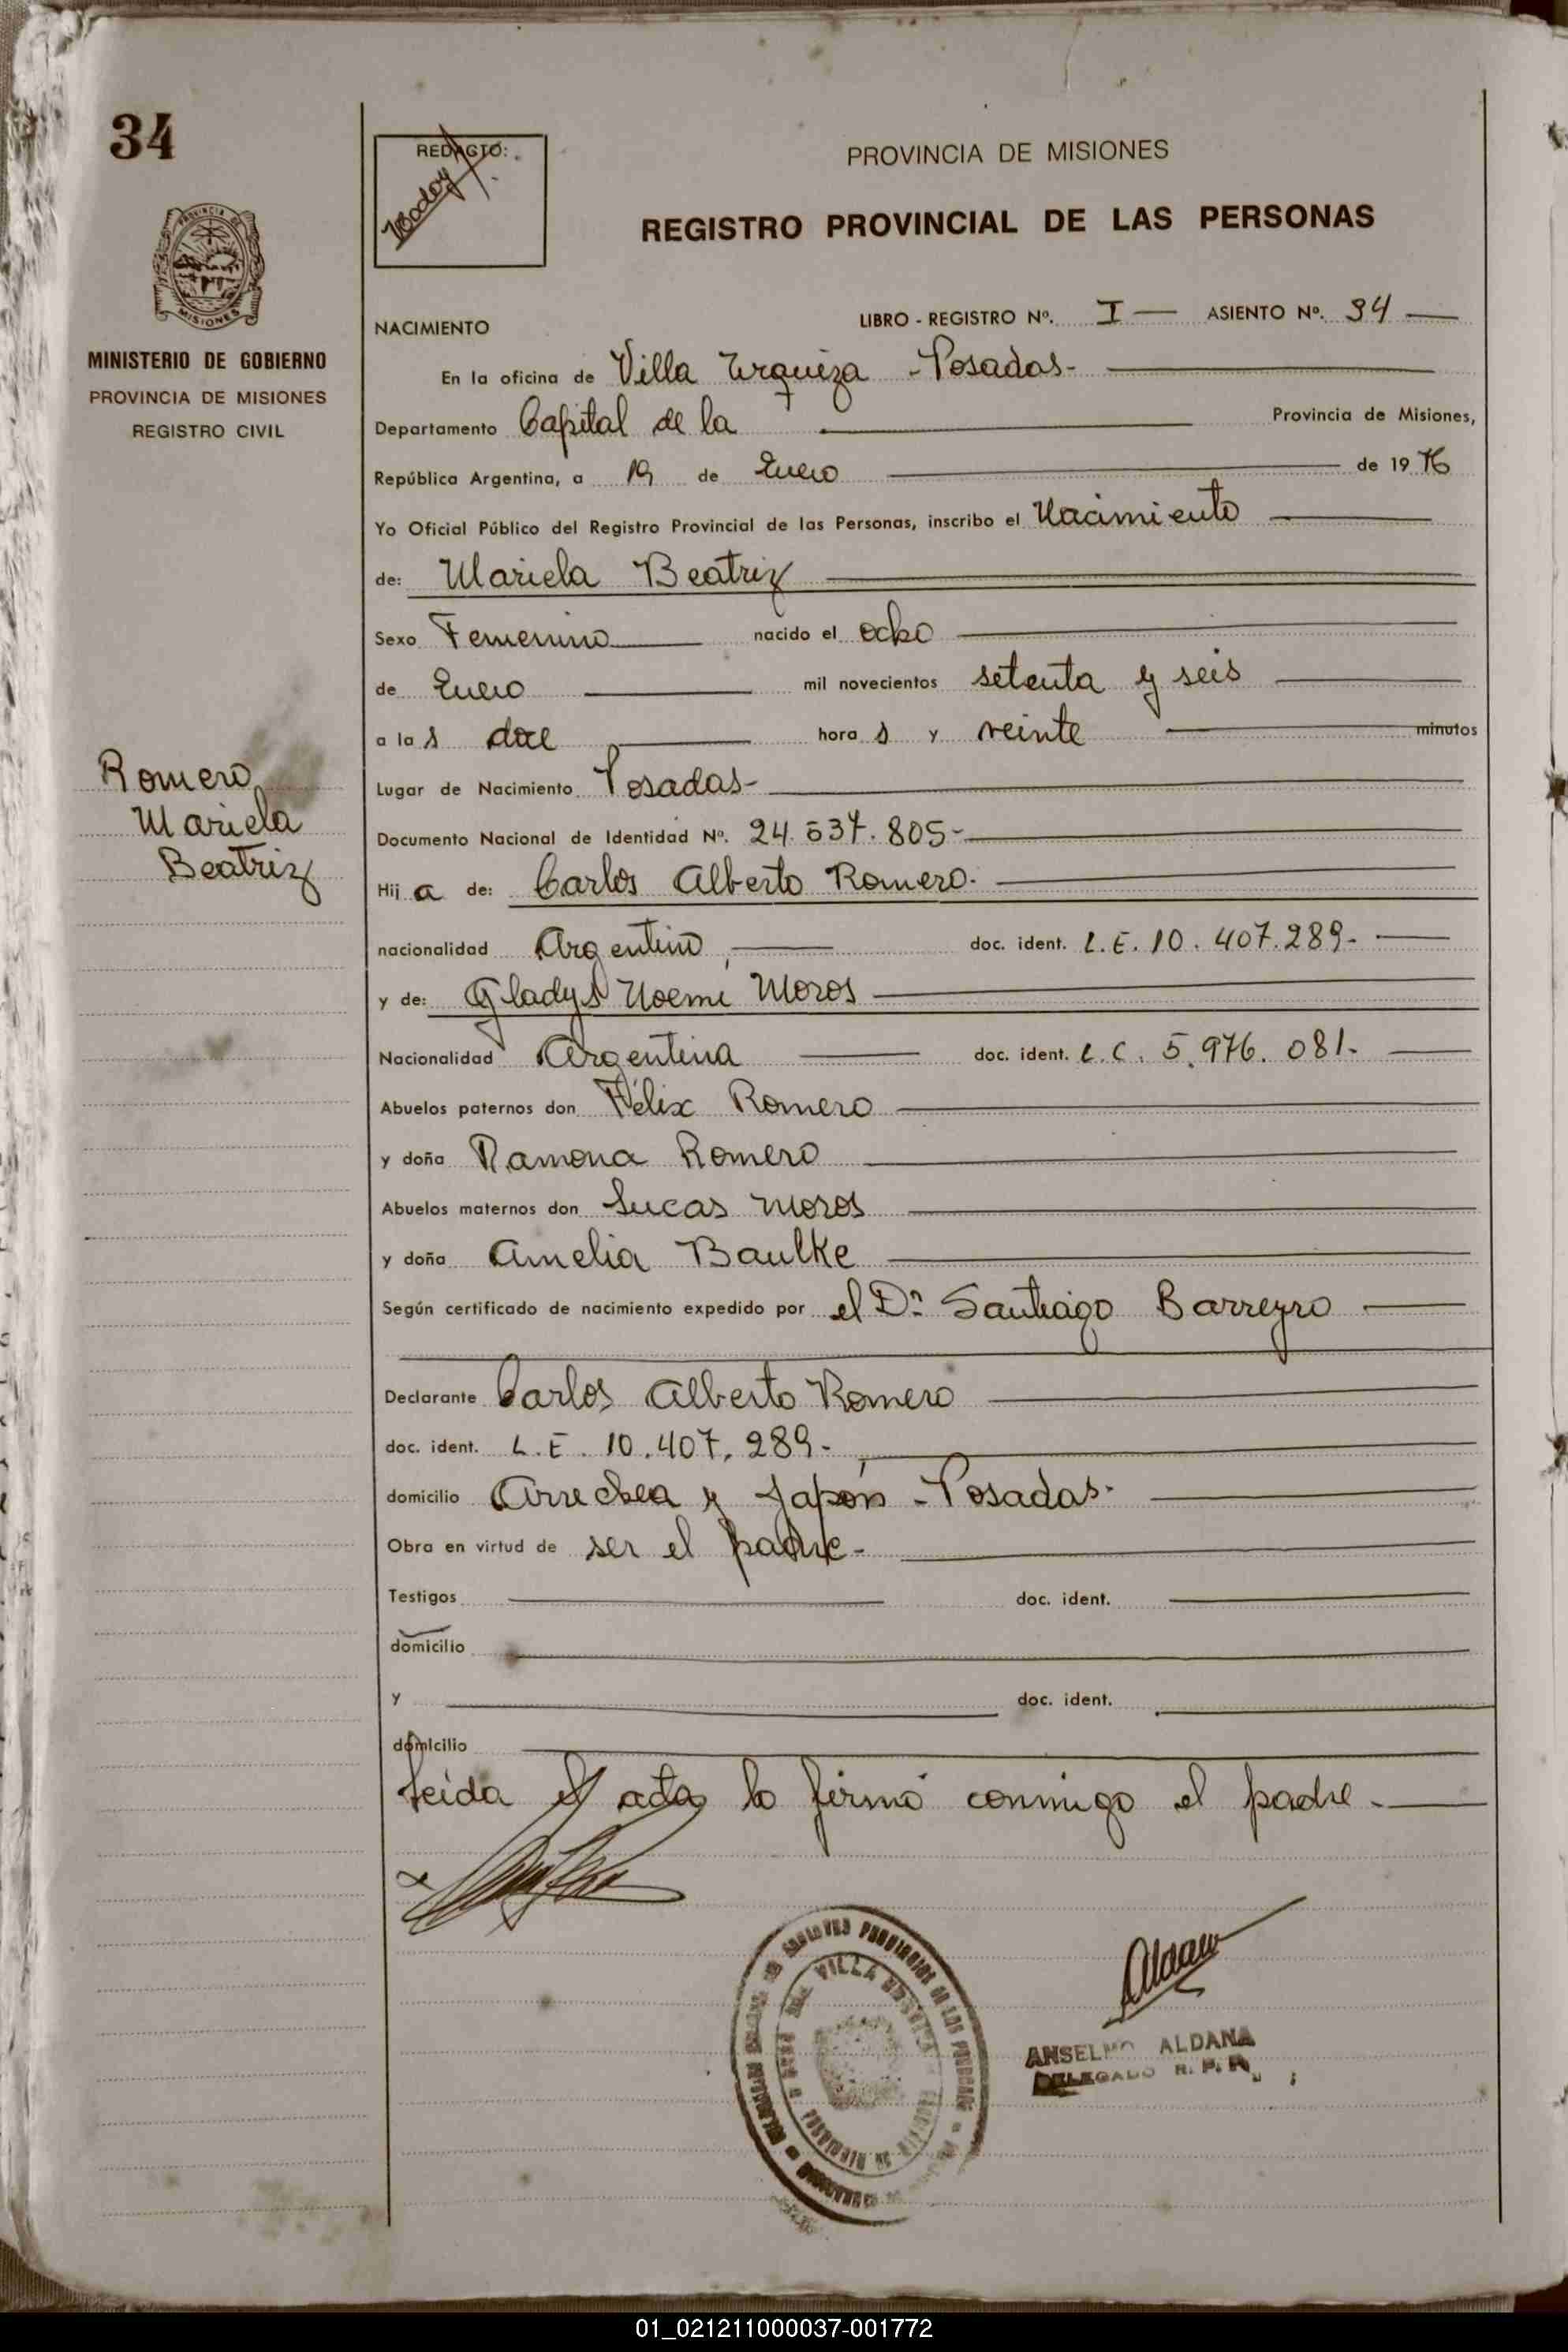 34
PROVINCIA DE
MISIONES
MINISTERIO DE GOBIERNO
PROVINCIA DE MISIONES
REGISTRO CIVIL
Romero
Mariela
Beatriz
REDACTO:
PROVINCIA DE MISIONES
REGISTRO PROVINCIAL DE LAS PERSONAS
NACIMIENTO LIBRO - REGISTRO Nº. I — ASIENTO Nº. 34 —
En la oficina de Villa Urquiza - Posadas-
Departamento Capital de la Provincia de Misiones,
República Argentina, a 19 de Enero de 1976
Yo Oficial Público del Registro Provincial de las Personas, inscribo el Nacimiento
de: Mariela Beatriz
Sexo Femenino nacido el ocho
de Enero mil novecientos setenta y seis
a la s doce hora s y veinte minutos
Lugar de Nacimiento Posadas-
Documento Nacional de Identidad Nº. 24.537.805-
Hij a de: Carlos Alberto Romero.
nacionalidad Argentino doc. ident. L.E. 10.407.289-
y de: Gladys Noemí Moros
Nacionalidad Argentina doc. ident. L.C. 5.976.081-
Abuelos paternos don Félix Romero
y doña Ramona Romero
Abuelos maternos don Lucas Moros
y doña Amelia Baulke
Según certificado de nacimiento expedido por el Dr. Santiago Barreyro
Declarante Carlos Alberto Romero
doc. ident. L.E. 10.407.289-
domicilio Arrechea y Japón - Posadas.
Obra en virtud de ser el padre-
Testigos doc. ident.
domicilio
y doc. ident.
domicilio
Leída el acta lo firmó conmigo el padre.-
VILLA URQUIZA
ANSELMO ALDANA
DELEGADO R. P. P.
01_021211000037-001772